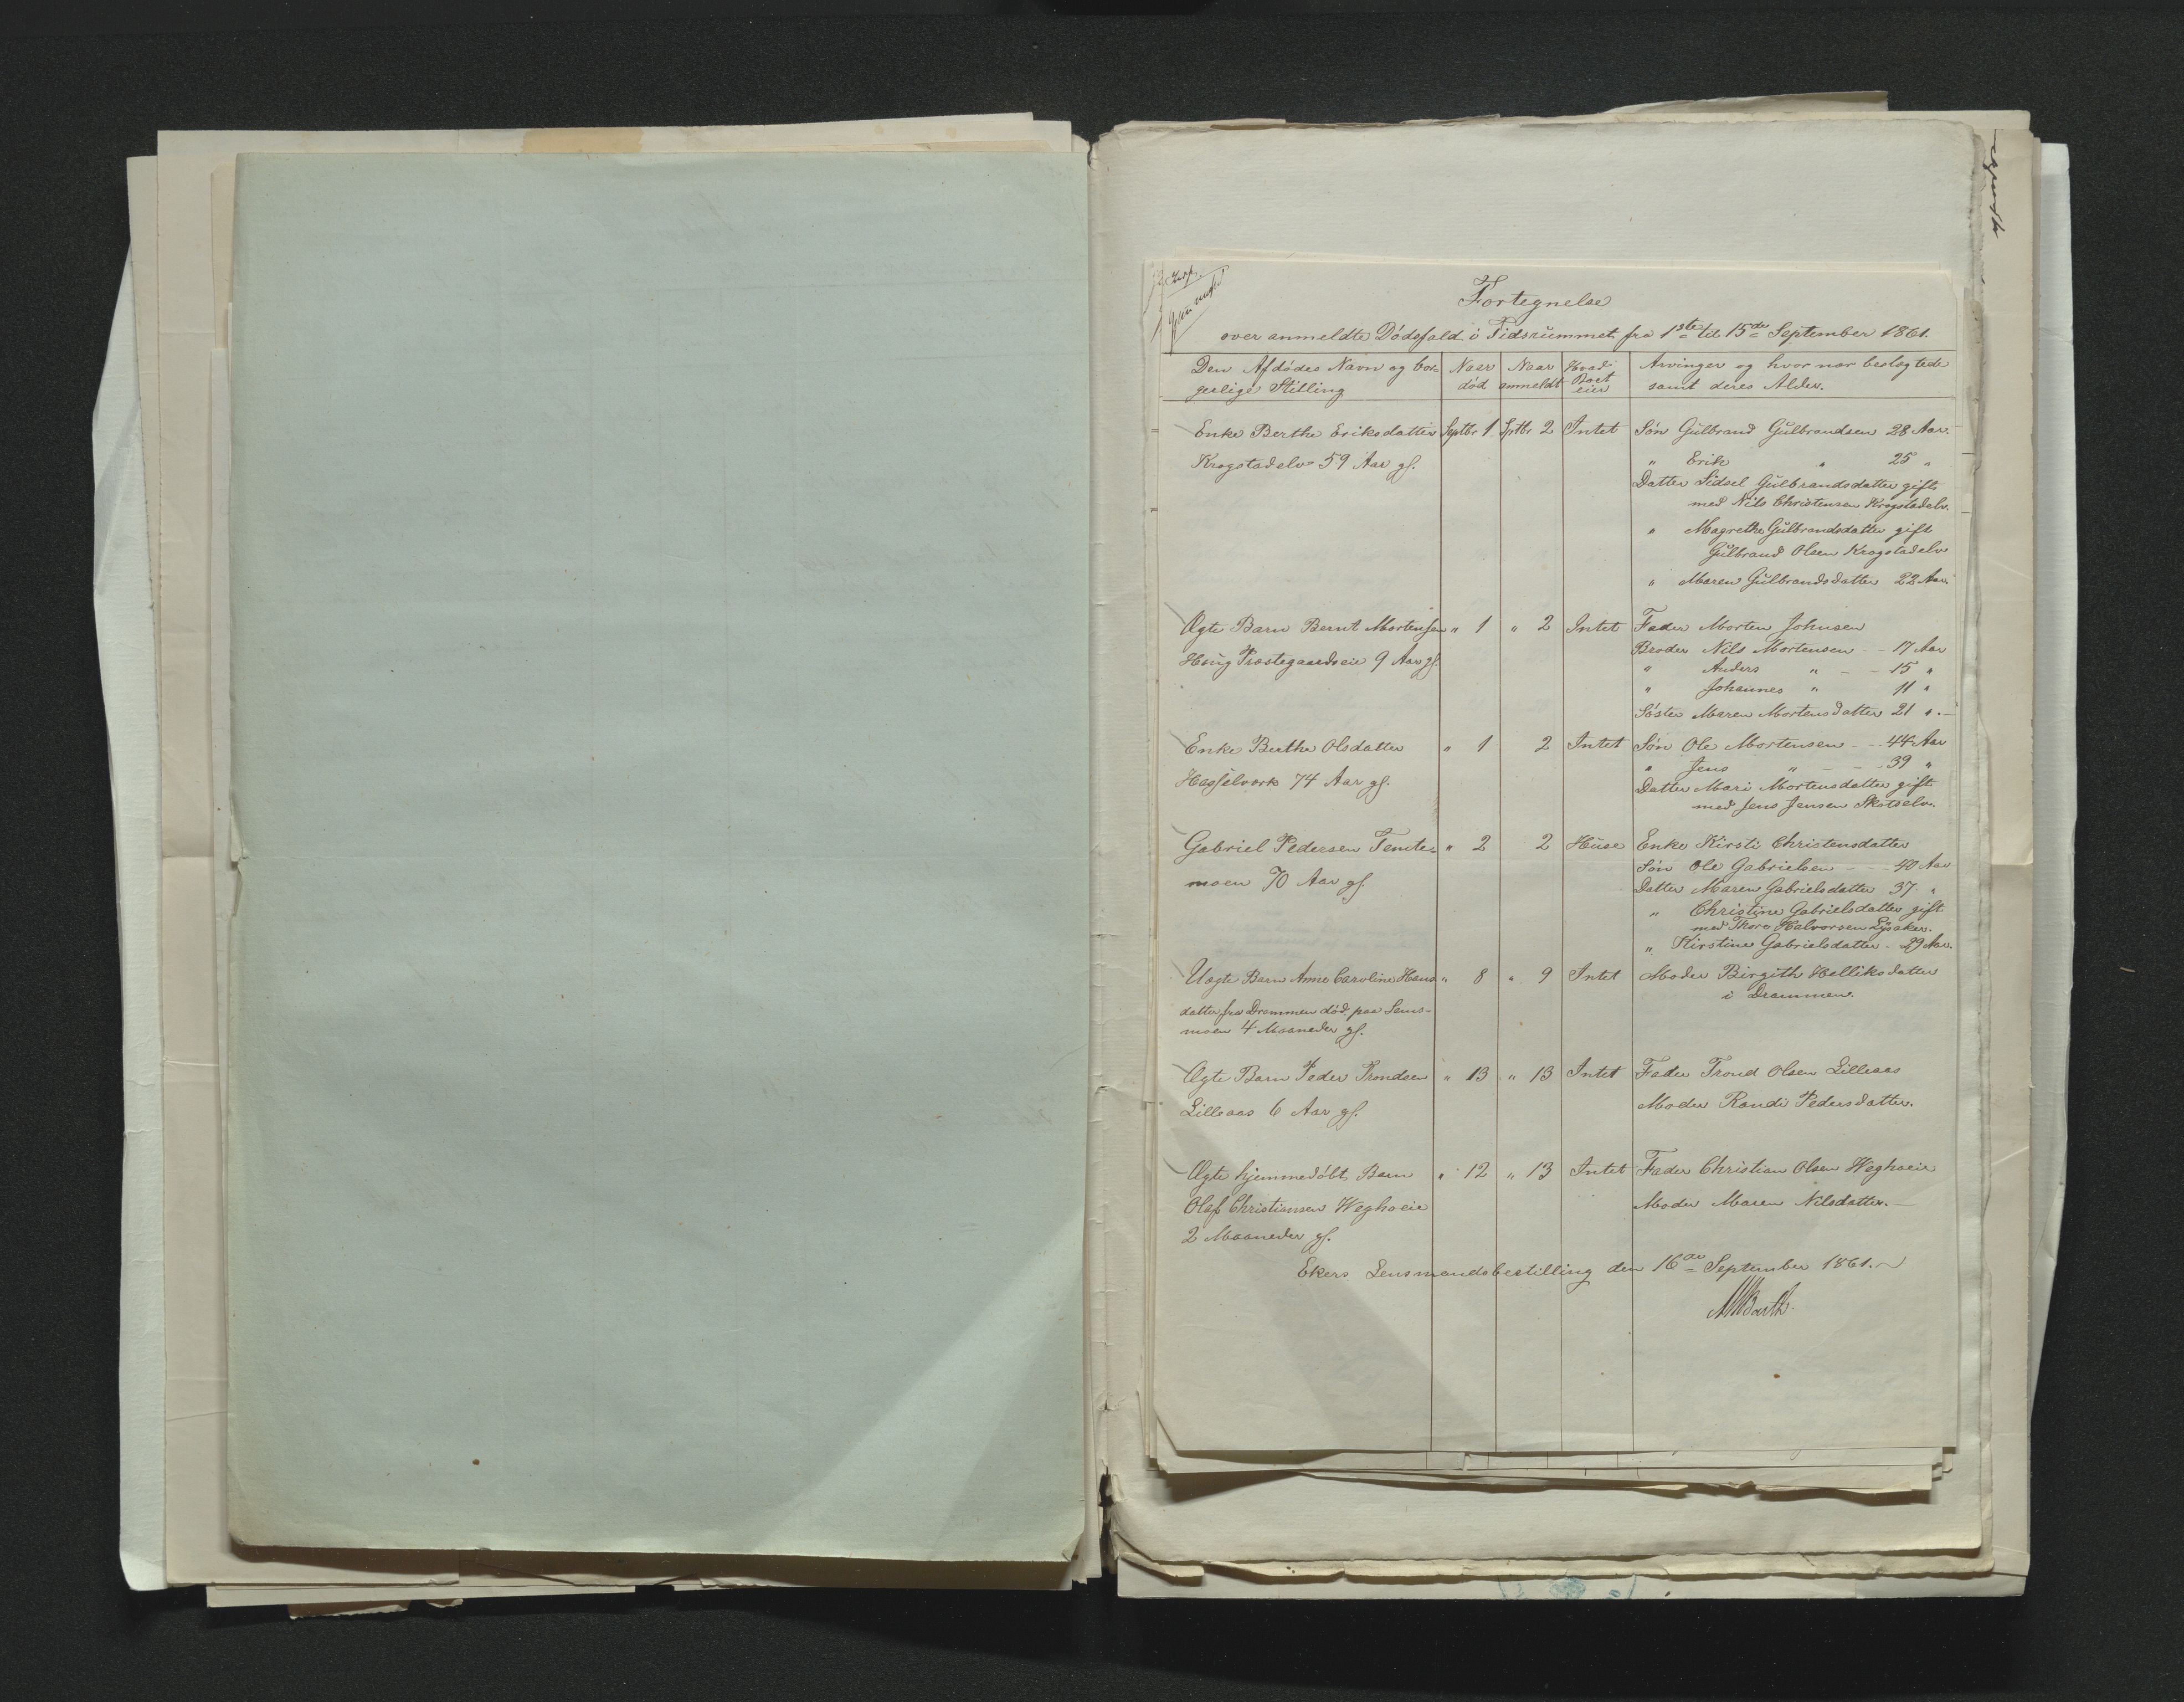 Fortegnelse
over anmeldte Dødsfald i Tidsrummet fra 1ste til 15de September 1861.
Den Afdødes Navn og bor- Naar Naar Hvad Arvinger og hvor nær beslægtede
gerlige Stilling død anmeldt Boet eier samt deres Alder.
Enke Berthe Eriksdatter Septbr 1 Sptbr 2 Intet Søn Gulbrand Gulbrandsen 28 Aar.
Krogstadelv 59 Aar gl. " Erik " 25 "
Datter Sidsel Gulbrandsdatter gift
med Nils Christensen Krogstadelv.
" Magrethe Gulbrandsdatter gift
Gulbrand Olsen Krogstadelv
" Maren Gulbrandsdatter 22 Aar.
Ægte Barn Bernt Mortensen " 1 " 2 Intet Fader Morten Johnsen
Houg Præstegaardseie 9 Aar gl. Broder Nils Mortensen - - 17 Aar
" Anders " - - 15 "
" Johannes " 11 "
Søster Maren Mortensdatter 21 ". -
Enke Berthe Olsdatter " 1 2 Intet Søn Ole Mortensen - - 44 Aar
Hasselværk 74 Aar gl. " Jens " - - - 39 "
Datter Mari Mortensdatter gift
med Jens Jensen Skotselv.
Gabriel Pedersen Temte- " 2 2 Huse Enke Kirsti Christensdatter
moen 70 Aar gl. Søn Ole Gabrielsen - - 40 Aar
Datter Maren Gabrielsdatter 37 "
" Christine Gabrielsdatter gift
med Thore Halvorsen Lysaker.
" Kirstine Gabrielsdatter - 29 Aar.
Uægte Barn Anne Caroline Hans " 8 " 9 Intet Moder Birgith Helliksdatter
datter fra Drammen død paa Sems- i Drammen.
moen 4 Maaneder gl.
Ægte Barn Peder Trondsen " 13 " 13 Intet Fader Trond Olsen Lilleaas
Lilleaas 6 Aar gl. Moder Randi Pedersdatter.
Ægte hjemmedøbt Barn " 12 " 13 Intet Fader Christian Olsen Weghoeie
Olaf Christiansen Weghoeie Moder Maren Nilsdatter. -
2 Maaneder gl.
Ekers Lensmandsbestilling den 16de September 1861.
Barth.